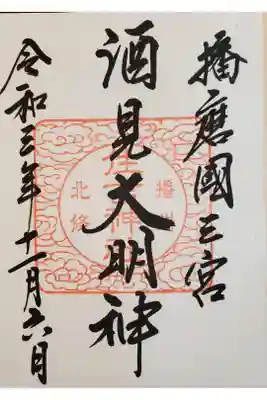 播磨國三宮
酒見大明神
令和三年十一月六日
播州
北條